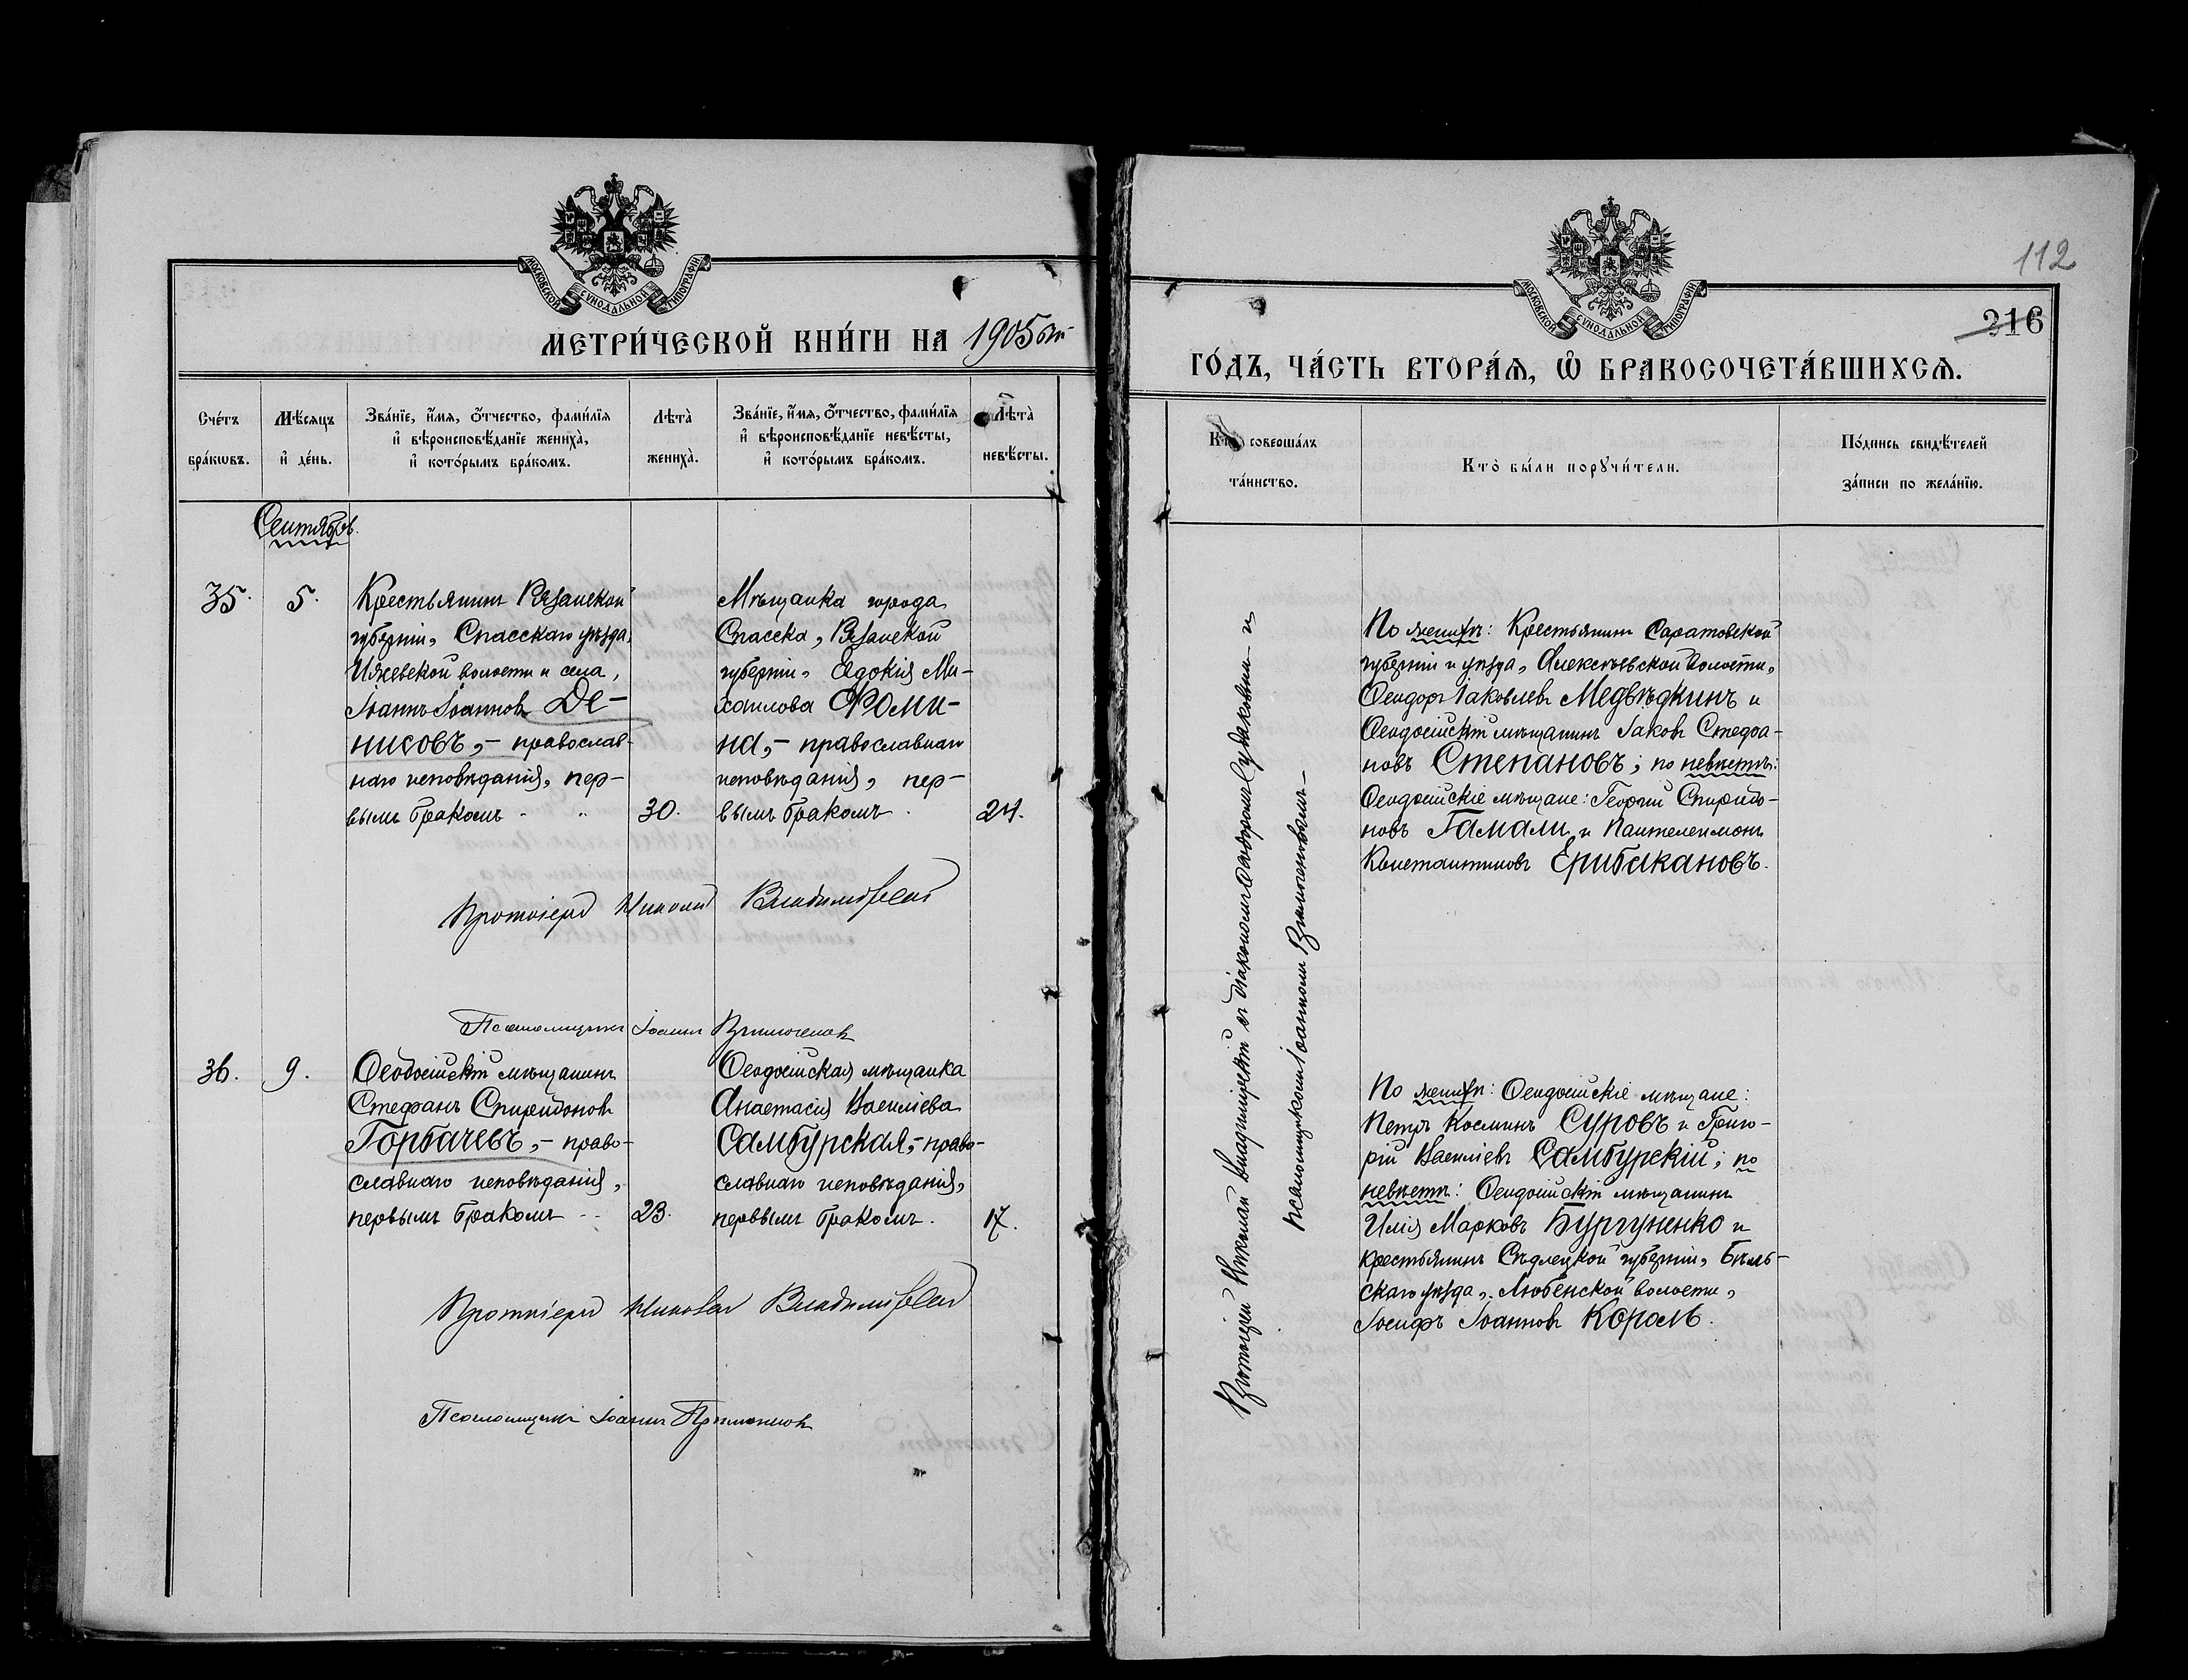 МОСКОВСКОЙ СѴНОДАЛЬНОЙ ТИПОГРАФІИ
МЕТРИ́ЧЕСКОЙ КНИ́ГИ НА 1905 ый
Сче́тъ бра́кѡвъ.
Мѣ́сяцъ и҆ де́нь.
Зва́нїе, и҆́мя, ѻ҆́тчество, фами́лїя
и҆ вѣроисповѣ́данїе жениха̀,
и҆ кото́рымъ бра́комъ.
Лѣта̀ жениха̀.
Зва́нїе, и҆́мя, ѻ҆́тчество, фами́лїя
и҆ вѣроисповѣ́данїе невѣ́сты,
и҆ кото́рымъ бра́комъ.
Лѣта̀ невѣ́сты.
Сентябрь.
35.
5.
Крестьянинъ Рязанской
губерніи, Спасскаго уѣзда,
Ижевской волости и села,
Іоаннъ Іоанновъ Де-
нисовъ,- православ-
наго исповѣданія, пер-
вымъ бракомъ
30.
Мѣщанка города
Спасска, Рязанской
губерніи, Евдокія Ми-
хаилова Ѳоми-
на,- православнаго
исповѣданія, пер-
вымъ бракомъ.
24.
Протоіерей Николай Владимірскій
Псаломщикъ Іоаннъ
36.
9.
Ѳеодосійскій мѣщанинъ
Стефанъ Спиридоновъ
Горбачевъ,- право-
славнаго исповѣданія,
первымъ бракомъ
23.
Ѳеодосійская мѣщанка
Анастасія Васильева
Самбурская,- право-
славнаго исповѣданія,
первымъ бракомъ.
17.
Протоіерей Николай Владимірскій
Псаломщикъ Іоаннъ
112
МОСКОВСКОЙ СѴНОДАЛЬНОЙ ТИПОГРАФІИ
216
ГО́ДЪ, ЧА́СТЬ ВТОРА́Я, Ѡ҆ БРАКОСОЧЕТА́ВШИХСЯ.
Кто̀ соверша́лъ
та́инство.
Кто̀ бы́ли порꙋчи́тели.
По́дпись свидѣ́телей
за́писи по жела́нїю.
Протоіерей Николай Владимірскій съ діакономъ Ѳеодоромъ и
псаломщикомъ Іоанномъ
По женихѣ: Крестьянинъ Саратовской
губерніи и уѣзда, Алексѣевской волости,
Ѳеодоръ Іаковлевъ Медвѣдкинъ и
Ѳеодосійскій мѣщанинъ Іаковъ Стефа-
новъ Степановъ; по невѣстѣ:
Ѳеодосійскіе мѣщане: Георгій Спиридо-
новъ Гамали и Пантелеимонъ
Константиновъ Ерибакановъ.
По женихѣ: Ѳеодосійскіе мѣщане:
Петръ Косминъ Суровъ и Григо-
рій Васильевъ Самбурскій; по
невѣстѣ: Ѳеодосійскій мѣщанинъ
Илія Марковъ Бургуненко и
крестьянинъ Сѣдлецкой губерніи, Бѣль-
скаго уѣзда, Любенской волости,
Іосифъ Іоанновъ Король.